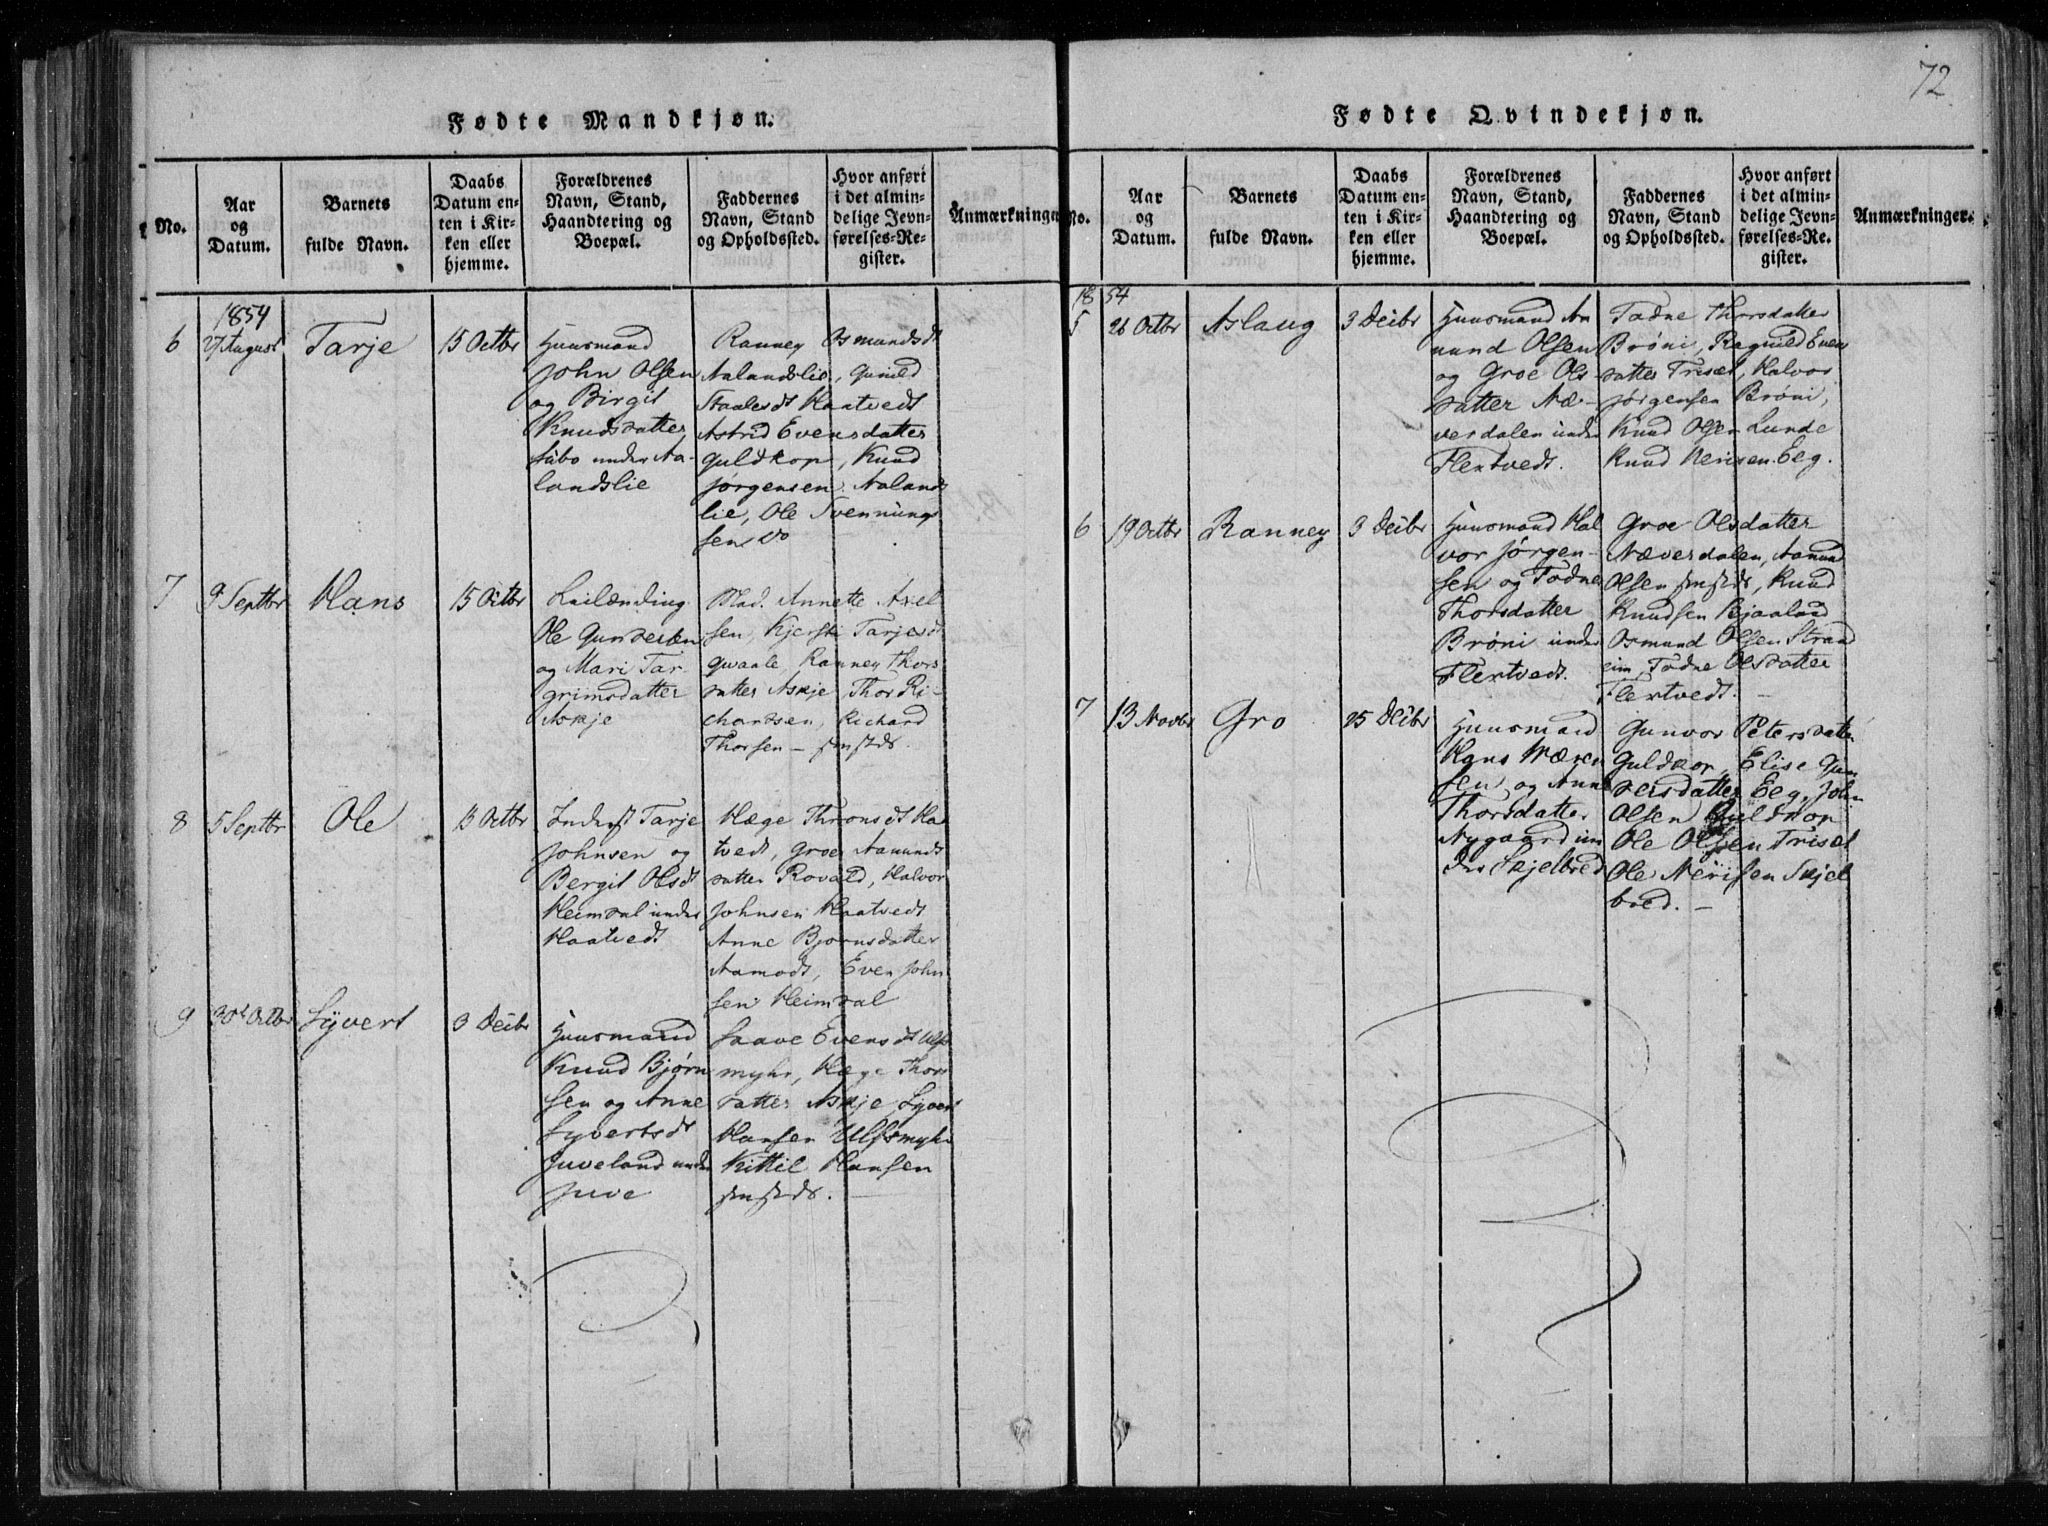 72.
Fødte Mandkjøn.
No.
Aar
og
Datum.
Barnets
fulde Navn.
Daabs
Datum en-
ten i Kir-
ken eller
hjemme.
Forældrenes
Navn, Stand,
Haandtering og
Boepæl.
Faddernes
Navn, Stand
og Opholdssted.
Hvor anført
i det almin-
delige Jevn-
førelses-Re-
gister.
Anmærkninger
1854
6
27 August
Tarje
15 Octbr
Huusmand
John Olsen
og Birgit
Knudsdatter
under Aa-
landslie
Ranney Osmundsdt
Aalandslie, Gunild
Staalesdt Haatvedt
Astrid Evensdatter
Guldkop, Knud
Jørgensen Aalands
lie, Ole Svennungs
sen do
7
9 Septbr
Hans
15 Octbr
Leilænding
Ole Gundersen
og Mari Tar-
grimsdatter
Askje
Mad. Annette Axel
sen, Kjersti Tarjesdt
Qvaale, Ranney Thors
datter Askje Thor Ri-
chardsen, Richard
Thorsen –
8
5 Septbr
Ole
15 Octbr
Inderst Tarje
Johnsen og
Bergit Olsdt
Heimdal under
Haatvedt
Hæge Thronsdt Ha
tvedt, Groe Aamunds
datter Rovald, Halvor
Johnsen Haatvedt
Anne Bjørnsdatter
Aamodt, Even John
sen Heimdal
9
30te Octbr
Syvert
3 Decbr
Huusmand
Knud Bjørn
sen og Anne
Syvertsdt
Juveland under
Juve
Saave Evensdt Ulfs
myhr, Hæge Thors
datter Askje, Syvert
Hansen Ulfsmyhr
Kittil Hansen
Fødte Qvindekjøn.
No.
Aar
og
Datum.
Barnets
fulde Navn.
Daabs
Datum en-
ten i Kir-
ken eller
hjemme.
Forældrenes
Navn, Stand,
Haandtering og
Boepæl.
Faddernes
Navn, Stand
og Opholdssted.
Hvor anført
i det almin-
delige Jevn-
førelses-Re-
gister.
Anmærkninger.
1854
5
26 Octbr
Aslaug
3 Decbr
Huusmand Aa
mund Olsen
og Groe Ols-
datter Næ-
verdalen under
Flextvedt.
Todne Thorsdatter
Brøni, Ragnild Evens
datter Trisæt, Halvor
Jørgensen Brøni,
Knud Olsen Lunde
Knud Nerisen Eeg.
6
19 Octbr
Ranney
3 Decbr
Huusmand Hal
vor Jørgen-
sen og Todne
Thorsdatter
Brøni under
Flextvedt.
Groe Olsdatter
Næverdalen, Aamund
Olsen Knud
Knudsen Bjaaland
Osmund Olsen Strand
eim, Todne Olsdatter
Flextvedt. –
7
13 Novbr
Gro
25 Decbr
Huusmand
Hans
sen og Anne
Thorsdatter
Nygaard un
der Skjelbred
Gunvor Petersdatter
Guldkop, Elise Gun
dersdatter Eeg, John
Olsen Guldkop
Ole Olsen Trisæt
Ole Nerisen Skjel
bred. –